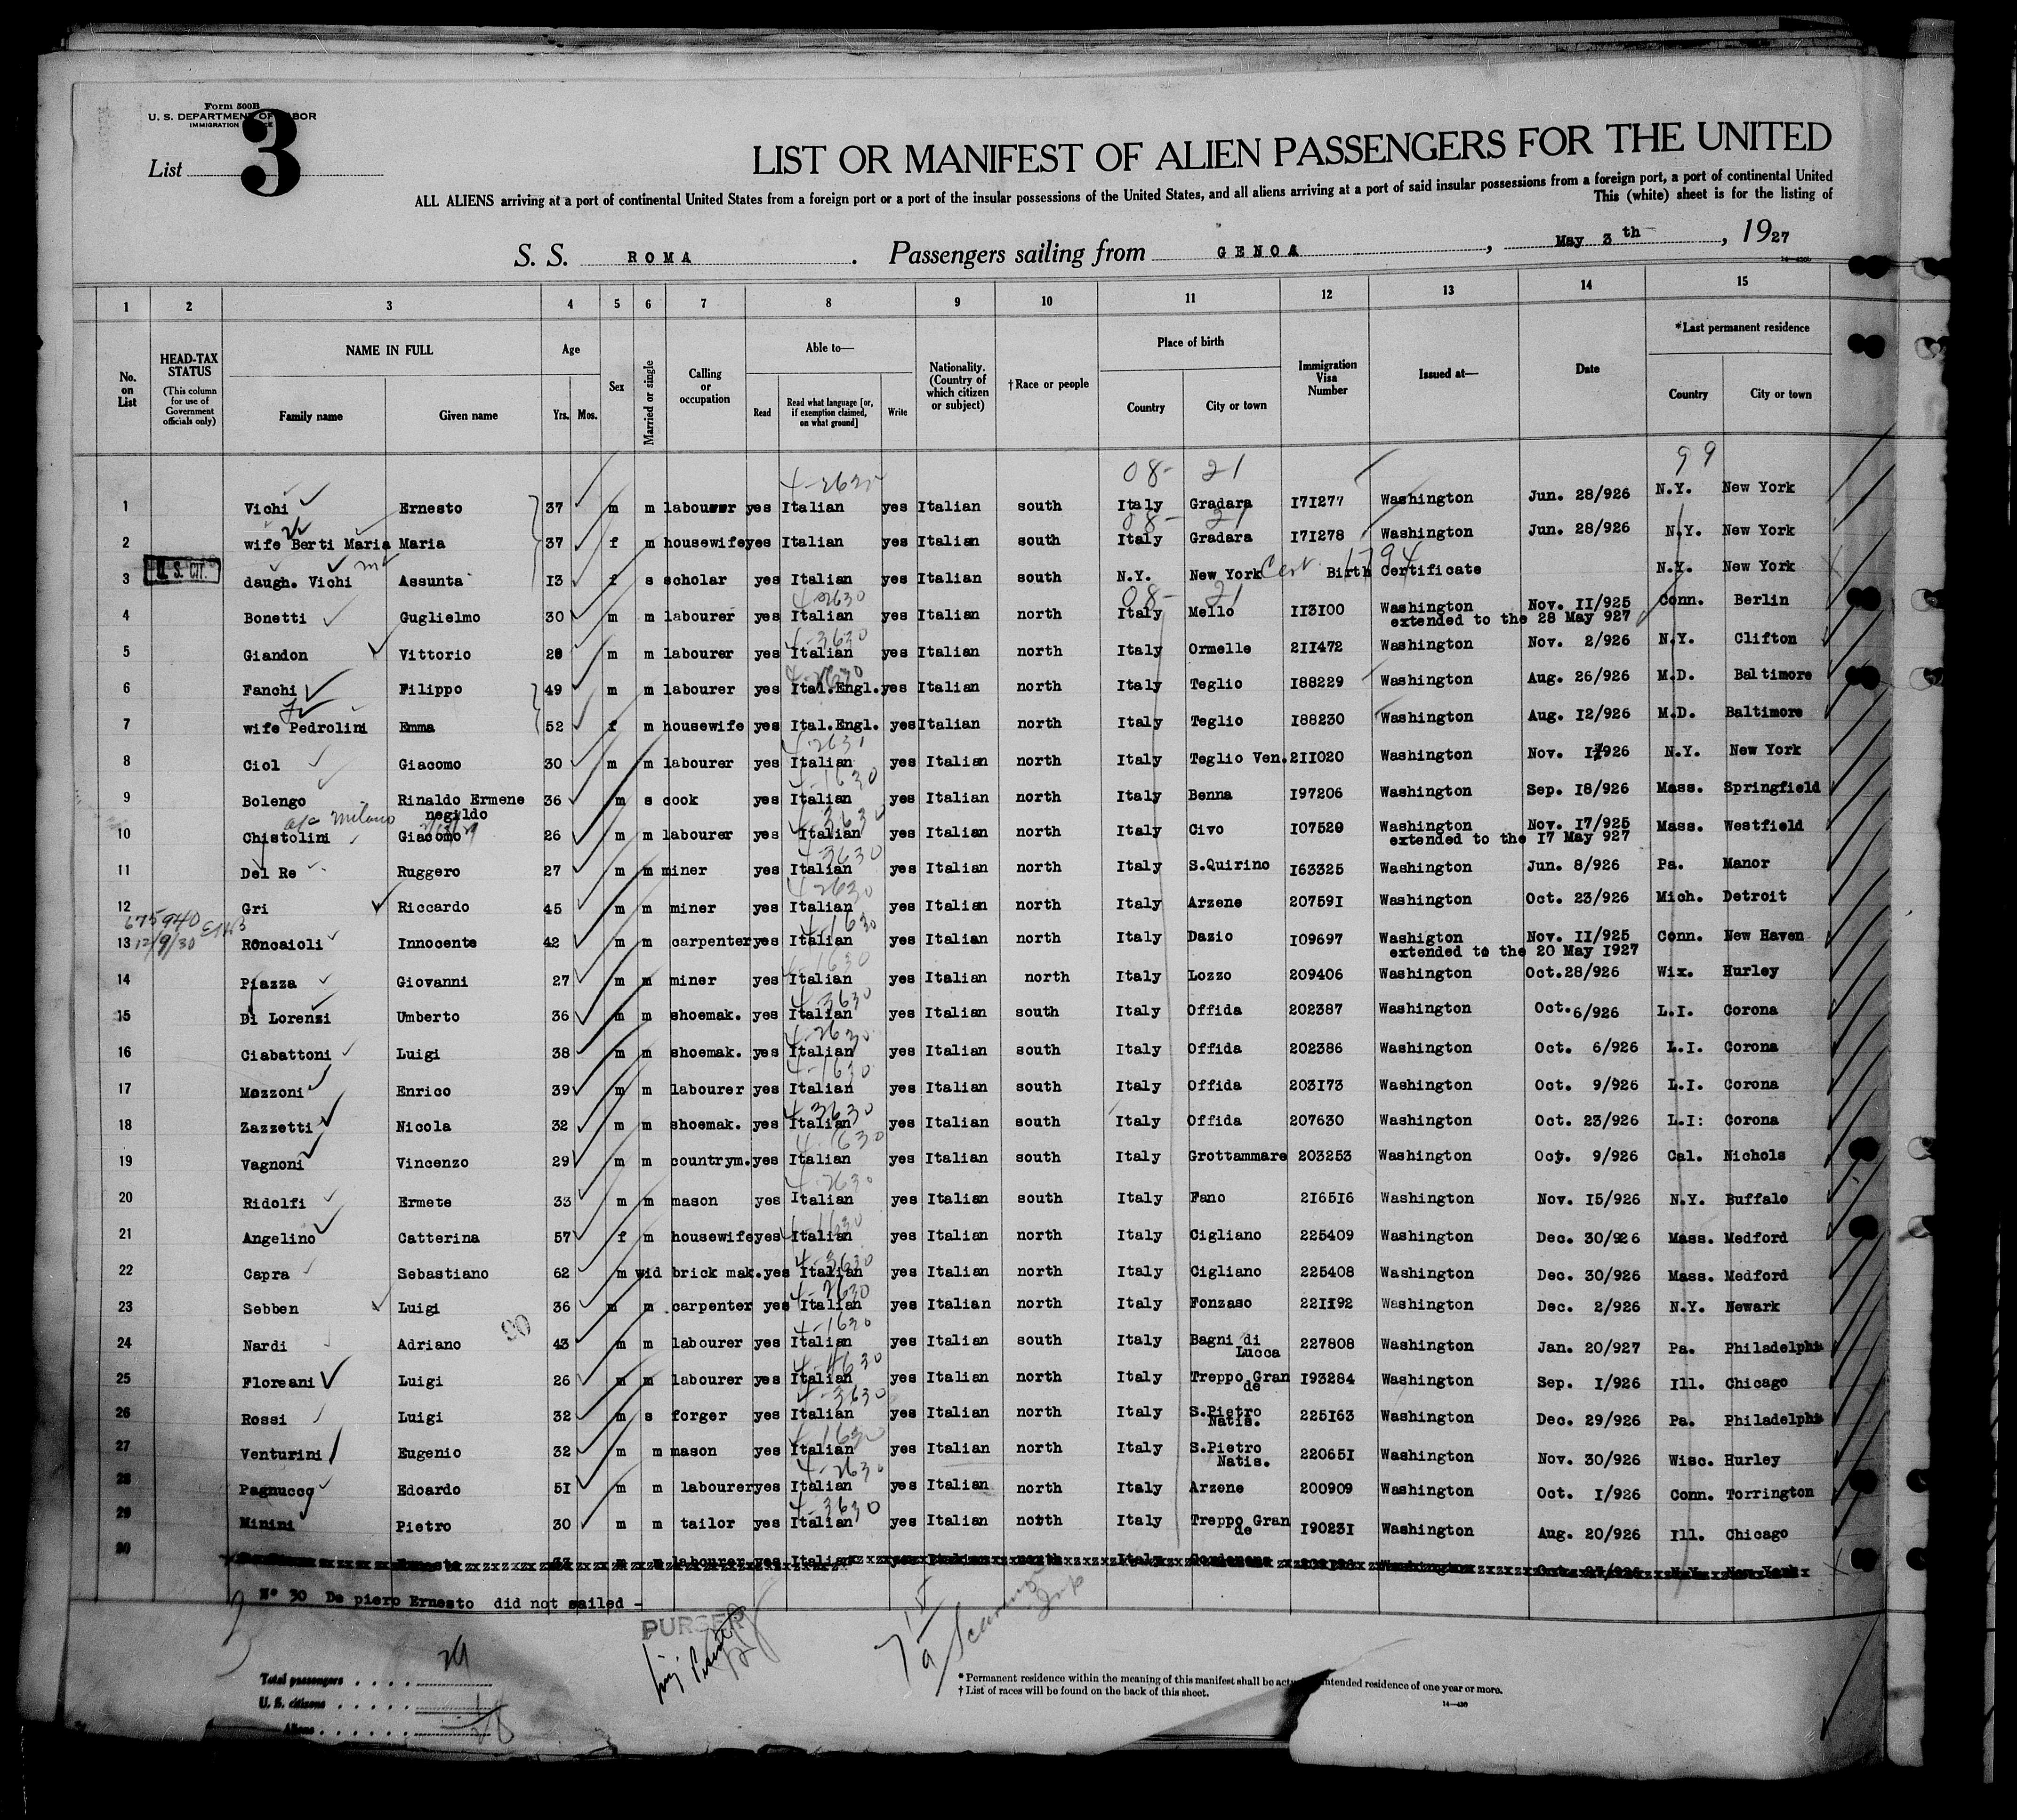 Form 500B
U. S. DEPARTMENT OF LABOR
IMMIGRATION
List 3
LIST OR MANIFEST OF ALIEN PASSENGERS FOR THE UNITED
ALL ALIENS arriving at a port of continental United States from a foreign port or a port of the insular possessions of the United States, and all aliens arriving at a port of said insular possessions from a foreign port, a port of continental United
This (white) sheet is for the listing of
S. S. ROMA. Passengers sailing from GENOA, May 3th, 1927
1 2 3 4 5 6 7 8 9 10 11 12 13 14 15
No. on List
HEAD-TAX STATUS (This column for use of Government officials only)
NAME IN FULL Family name Given name
Age Yrs. Mos.
Sex
Married or single
Calling or occupation
Able to— Read Read what language [or, if exemption claimed, on what ground] Write
Nationality. (Country of which citizen or subject)
†Race or people
Place of birth Country City or town
Immigration Visa Number
Issued at—
Date
*Last permanent residence Country City or town
4-2625 08- 21 99
1 Vichi Ernesto 37 m m labourer yes Italian yes Italian south Italy Gradara 171277 Washington Jun. 28/926 N.Y. New York
08- 21
2 wife Berti Maria Maria 37 f m housewife yes Italian yes Italian south Italy Gradara 171278 Washington Jun. 28/926 N.Y. New York
3 U.S. CIT. daugh. Vichi Assunta 13 f s scholar yes Italian yes Italian south N.Y. New York Cert. 1794 Birth Certificate N.Y. New York
4-2630 08- 21
4 Bonetti Guglielmo 30 m m labourer yes Italian yes Italian north Italy Mello 113100 Washington Nov. 11/925 Conn. Berlin
extended to the 28 May 927
4-3630
5 Giandon Vittorio 28 m m labourer yes Italian yes Italian north Italy Ormelle 211472 Washington Nov. 2/926 N.Y. Clifton
6 Fanchi Filippo 49 m m labourer yes Ital.Engl. yes Italian north Italy Teglio 188229 Washington Aug. 26/926 M.D. Baltimore
7 wife Pedrolini Emma 52 f m housewife yes Ital.Engl. yes Italian north Italy Teglio 188230 Washington Aug. 12/926 M.D. Baltimore
4-2631
8 Ciol Giacomo 30 m m labourer yes Italian yes Italian north Italy Teglio Ven. 211020 Washington Nov. 926 N.Y. New York
4-1630
9 Bolengo Rinaldo Ermene 36 m s cook yes Italian yes Italian north Italy Benna 197206 Washington Sep. 18/926 Mass. Springfield
negildo
Milano 4-3630
10 Chistolini Giacomo 26 m m labourer yes Italian yes Italian north Italy Civo 107520 Washington Nov. 17/925 Mass. Westfield
extended to the 17 May 927
4-3630
11 Del Re Ruggero 27 m m miner yes Italian yes Italian north Italy S.Quirino 163325 Washington Jun. 8/926 Pa. Manor
4-2630
12 Gri Riccardo 45 m m miner yes Italian yes Italian north Italy Arzene 207591 Washington Oct. 23/926 Mich. Detroit
675940 4-1630
13 12/9/30 Roncaioli Innocente 42 m m carpenter yes Italian yes Italian north Italy Dazio 109697 Washigton Nov. 11/925 Conn. New Haven
extended to the 20 May 1927
4-1630
14 Piazza Giovanni 27 m m miner yes Italian yes Italian north Italy Lozzo 209406 Washington Oct.28/926 Wix. Hurley
4-3630
15 Di Lorenzi Umberto 36 m m shoemak. yes Italian yes Italian south Italy Offida 202387 Washington Oct.6/926 L.I. Corona
4-2630
16 Ciabattoni Luigi 38 m m shoemak. yes Italian yes Italian south Italy Offida 202386 Washington Oct. 6/926 L.I. Corona
4-1630
17 Mozzoni Enrico 39 m m labourer yes Italian yes Italian south Italy Offida 203173 Washington Oct. 9/926 L.I. Corona
4-3630
18 Zazzetti Nicola 32 m m shoemak. yes Italian yes Italian south Italy Offida 207630 Washington Oct. 23/926 L.I: Corona
4-1630
19 Vagnoni Vincenzo 29 m m countrym. yes Italian yes Italian south Italy Grottammare 203253 Washington Oct. 9/926 Cal. Nichols
4-2630
20 Ridolfi Ermete 33 m m mason yes Italian yes Italian south Italy Fano 216516 Washington Nov. 15/926 N.Y. Buffalo
4-1630
21 Angelino Catterina 57 f m housewife yes Italian yes Italian north Italy Cigliano 225409 Washington Dec. 30/926 Mass. Medford
4-3630
22 Capra Sebastiano 62 m wid brick mak. yes Italian yes Italian north Italy Cigliano 225408 Washington Dec. 30/926 Mass. Medford
4-2630
23 Sebben Luigi 36 m m carpenter yes Italian yes Italian north Italy Fonzaso 221192 Washington Dec. 2/926 N.Y. Newark
4-1630
24 Nardi Adriano 43 m m labourer yes Italian yes Italian south Italy Bagni di Lucca 227808 Washington Jan. 20/927 Pa. Philadelphi
4-4630
25 Floreani Luigi 26 m m labourer yes Italian yes Italian north Italy Treppo Gran de 193284 Washington Sep. 1/926 Ill. Chicago
4-3630
26 Rossi Luigi 32 m s forger yes Italian yes Italian north Italy S.Pietro Natis. 225163 Washington Dec. 29/926 Pa. Philadelphi
4-1630
27 Venturini Eugenio 32 m m mason yes Italian yes Italian north Italy S.Pietro Natis. 220651 Washington Nov. 30/926 Wisc. Hurley
4-2630
28 Pagnucco Edoardo 51 m m labourer yes Italian yes Italian north Italy Arzene 200909 Washington Oct. 1/926 Conn. Torrington
4-3630
29 Minini Pietro 30 m m tailor yes Italian yes Italian north Italy Treppo Gran de 190231 Washington Aug. 20/926 Ill. Chicago
30 Ernesto 33 m m labourer yes Italian yes Italian north Italy Washington N.Y. New York
N° 30 De piero Ernesto did not sailed -
PURSER
Total passengers 29
U. S. citizens
Aliens 28
* Permanent residence within the meaning of this manifest shall be actual intended residence of one year or more.
† List of races will be found on the back of this sheet.
14—430